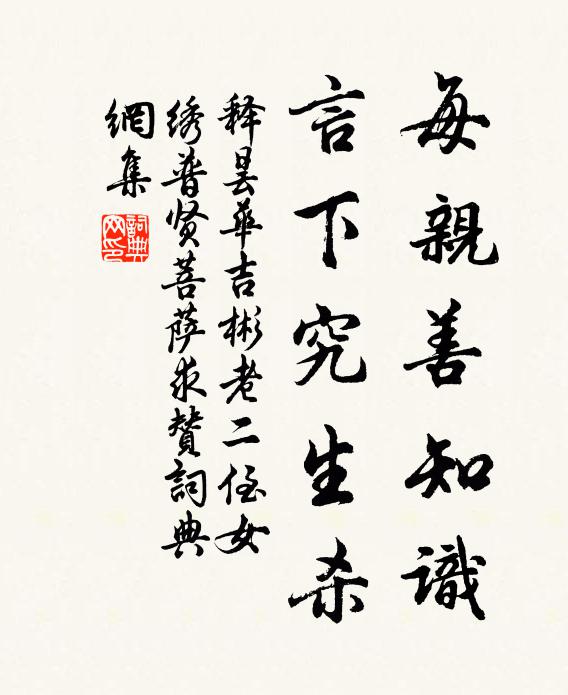 每親善知識
言下究生杀
释曇華吉彬老二侄女
绣普贤菩萨求贊詞典
網集
詞典網印